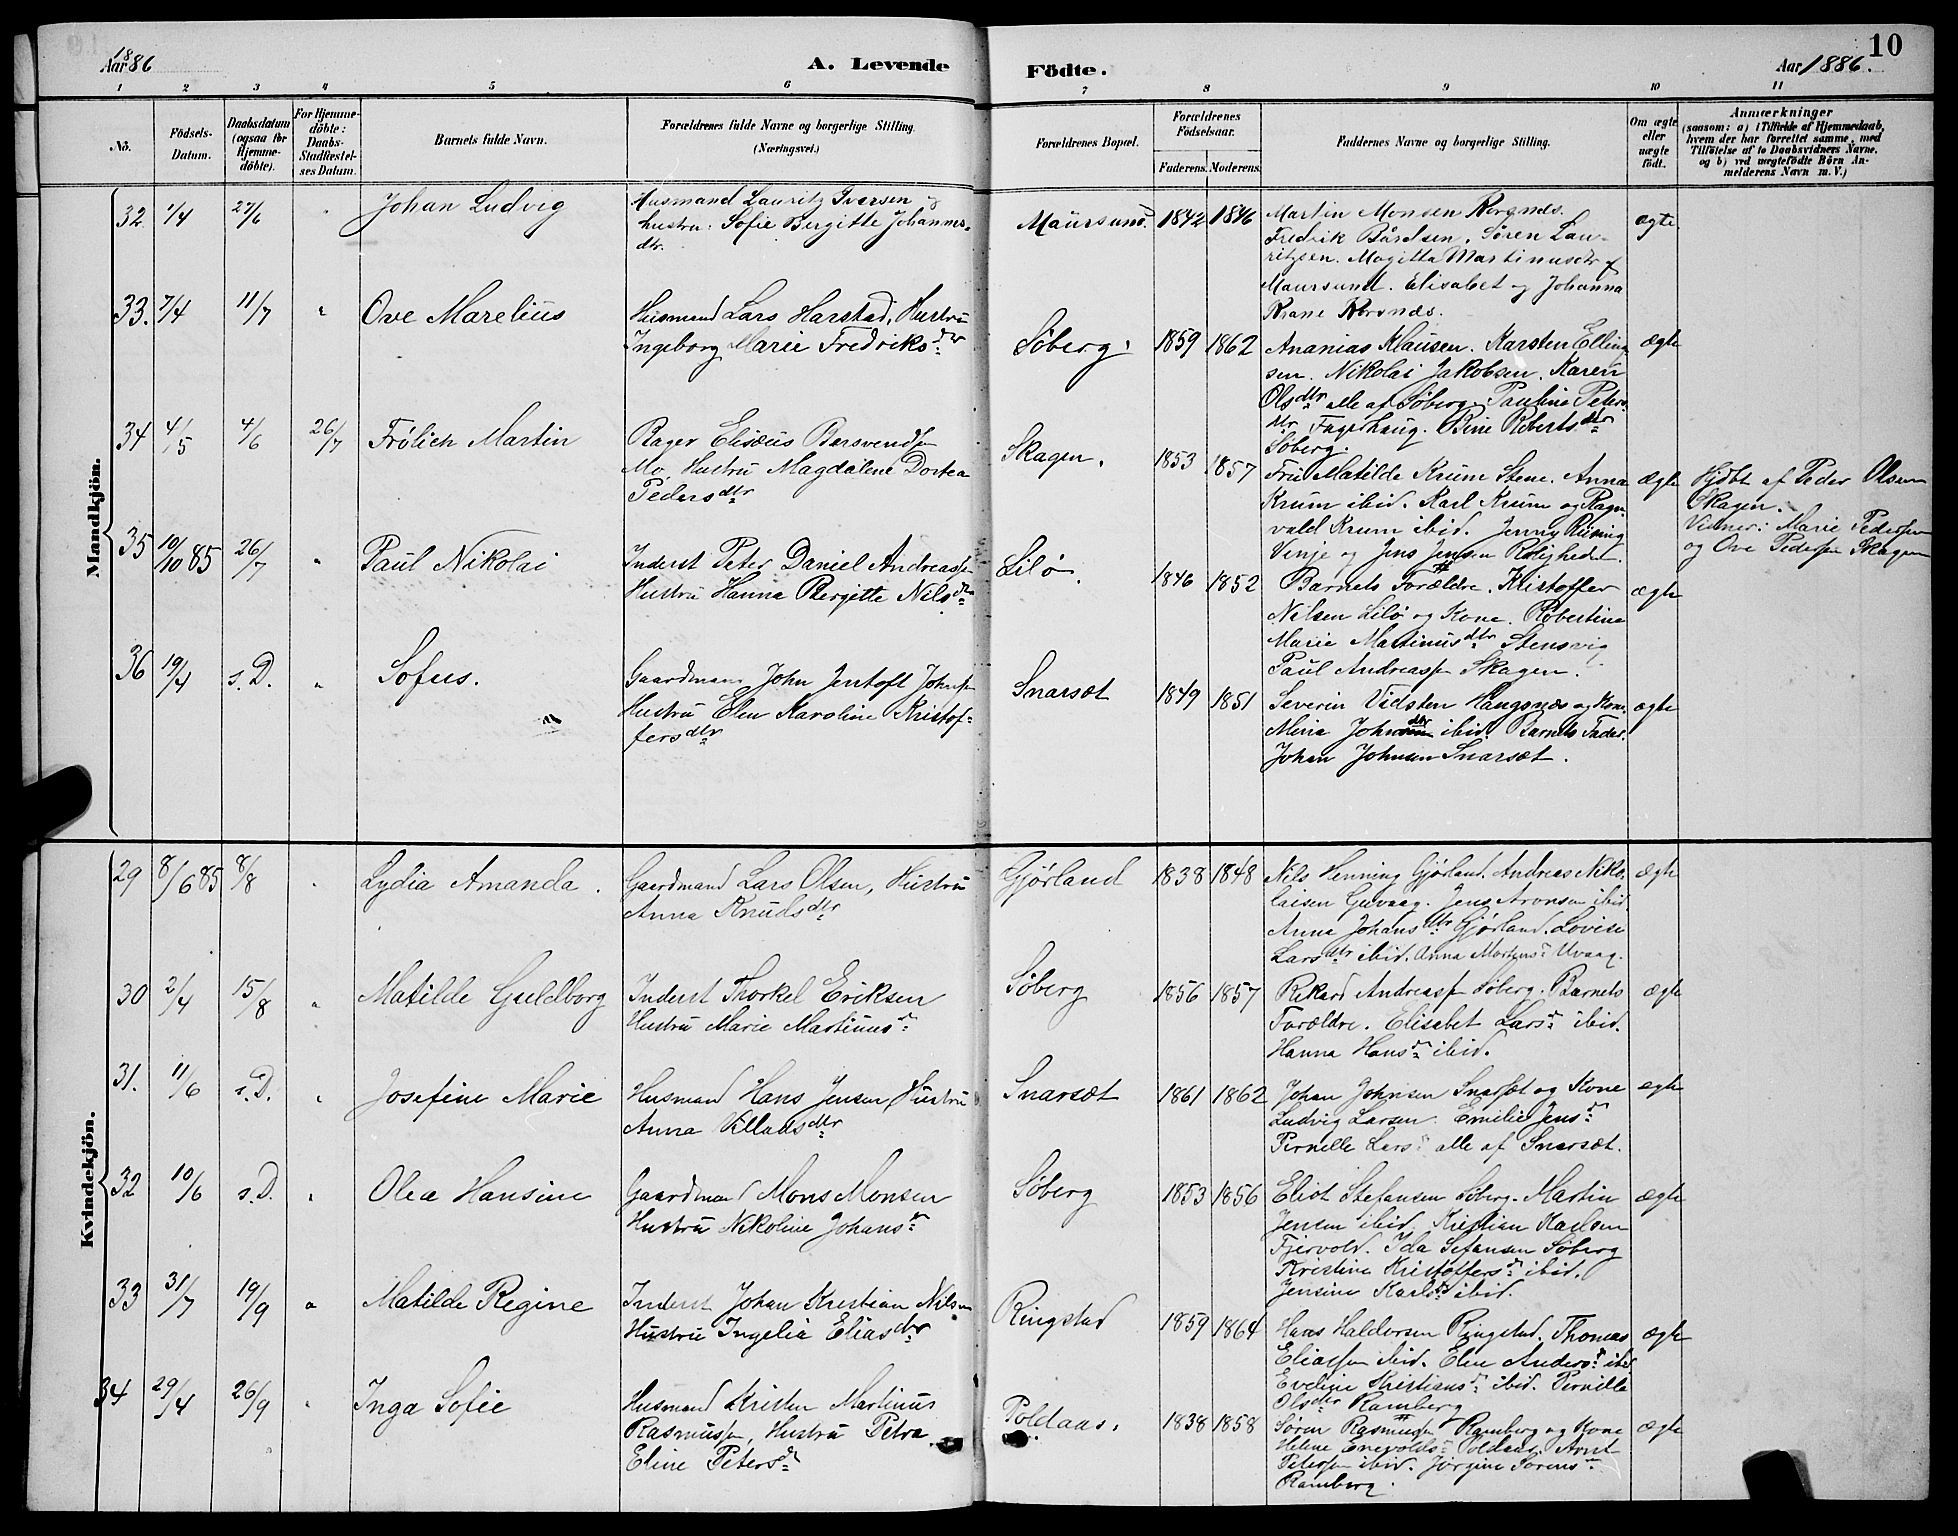 10
Aar 1886
A. Levende
Födte.
Aar 1886.
1 2 3 4 5 6 7 8 9 10 11
No.
Födsels-
Datum.
Daabsdatum
(ogsaa for
Hjemme-
döbte).
For Hjemme-
döbte:
Daabs-
Stadfæstel-
ses Datum.
Barnets fulde Navn.
Forældrenes fulde Navne og borgerlige Stilling.
(Næringsvei.)
Forældrenes Bopæl.
Forældrenes
Födselsaar.
Faderens. Moderens.
Faddernes Navne og borgerlige Stilling.
Om ægte
eller
uægte
födt.
Anmærkninger
(saasom: a) i Tilfælde af Hjemmedaab,
hvem der har forrettet samme, med
Tilföielse af to Daabsvidners Navne,
og b) ved uægtefödte Börn An-
melderens Navn m. V.)
Mandkjön.
32 1/4 27/6 " Johan Ludvig
Husmand Lauritz Ivarsen og
hustru: Sofie Birgitte Johannes-
dtr.
Maursund. 1842 1846
Martin Monsen
Fredrik Bårdsen. Søren Lau-
ritzsen. Magitta Martinusdtr af
Maursund. Elisabet og Johanna
ægte
33. 7/4 11/7 " Ove Marelius
Husmand Lars Harstad, Hustru
Ingeborg Marie Fredriksdtr
Søberg. 1859 1862
Ananias Klausen. Karsten Elling
sen. Nikolai Jakobsen. Karen
Olsdtr alle af Søberg. Pauline Peters
dtr Fagerhaug. Bine Robertsdtr
Søberg.
ægte
34 4/5 4/6 26/7 Frölich Martin
Elisæus Barsvends
Mo Hustru Magdalene Dortea
Pedersdtr
Skagen. 1853 1857
Fru Matilde Krum Stene. Anna
Krum ibid. Karl Krum og Ragn
vald Krum ibid. Jenny
Vinje og Jens Jensen Rolighedt.
ægte
Hjdbt af Peder Olsen
Skagen.
Vidner: Marie Pedersen
og Ove Pedersen Skagen
35 10/10 85 26/7 " Paul Nikolai
Inderst Peter Daniel Andreass
Hustru Hanna Bergitte Nilsdtr
Lilø. 1846 1852
Barnets Forældre. Kristoffer
Nilsen Lilø og Kone. Robertine
Marie Martinusdtr Stensvig
Paul Andreass Skagen.
ægte
36 19/4 s.D. " Sofus.
Gaardmand John Jentoft Johns
Hustru Elen Karoline Kristof-
fersdtr
Snarsæt 1849 1851
Severin Vidsten Haugsnæs og Kone
Mina Johnsdtr ibid. Barnets Fader.
Johan Johnsen Snarsæt.
ægte
Kvindekjön.
29 8/6 85 8/8 " Lydia Amanda.
Gaardmand Lars Olsen, Hustru
Anna Knudsdtr
Gjørland 1838 1848
Nils Henning Gjørland. Andreas Niko-
laisen Guvaag. Jens Aronsen ibid.
Anna Johansdtr Gjørland. Lovise
Larsdtr ibid. Anna Mortens Uvaag.
ægte
30 2/4 15/8 " Matilde Guldborg
Inderst Thorkel Eriksen
Hustru Marie Martinusd
Søberg 1856 1857
Rikard Andreass Søberg. Barnets
Forældre. Elisabet Larsd ibid.
Hanna Hansd ibid.
ægte
31. 11/6 s.D. " Josefine Marie
Husmand Hans Jensen, Hustru
Anna Villadsdtr
Snarsæt 1861 1862
Johan Johnsen Snarsæt og Kone
Ludvig Larsen. Emilie Jensd
Pernelle Larsd alle af Snarsæt.
ægte
32 10/6 s.D. " Olea Hansine
Gaardmand Mons Monsen
Hustru Nikoline Johansd
Søberg 1853 1856
Eliot Stefansen Søberg. Martin
Jensen ibid. Kristian Karlsen
Fjervold. Ida Stefansen Søberg
Kristine Kristoffersd ibid.
Jensine Karlsd ibid.
ægte
33 31/7 19/9 " Matilde Regine
Inderst Johan Kristian Nilsen
Hustru Ingelia Eliasdtr
Ringstad 1859 1864
Hans Haldorsen Ringstad. Thomas
Eliass ibid. Elen Andersd ibid
Eveline Kristiansd ibid. Pernille
Olsdtr Ramberg
ægte
34 29/4 26/9 " Inga Sofie
Husmand Kristen Martinus
Rasmuss, Hustru Petra
Eline Petersd
Poldaas. 1838 1858
Søren Rasmuss Ramberg og Kone
Helene Enevoldsd Poldaas. Arnt
Peters ibid. Jørgine Sørensd
Ramberg.
ægte